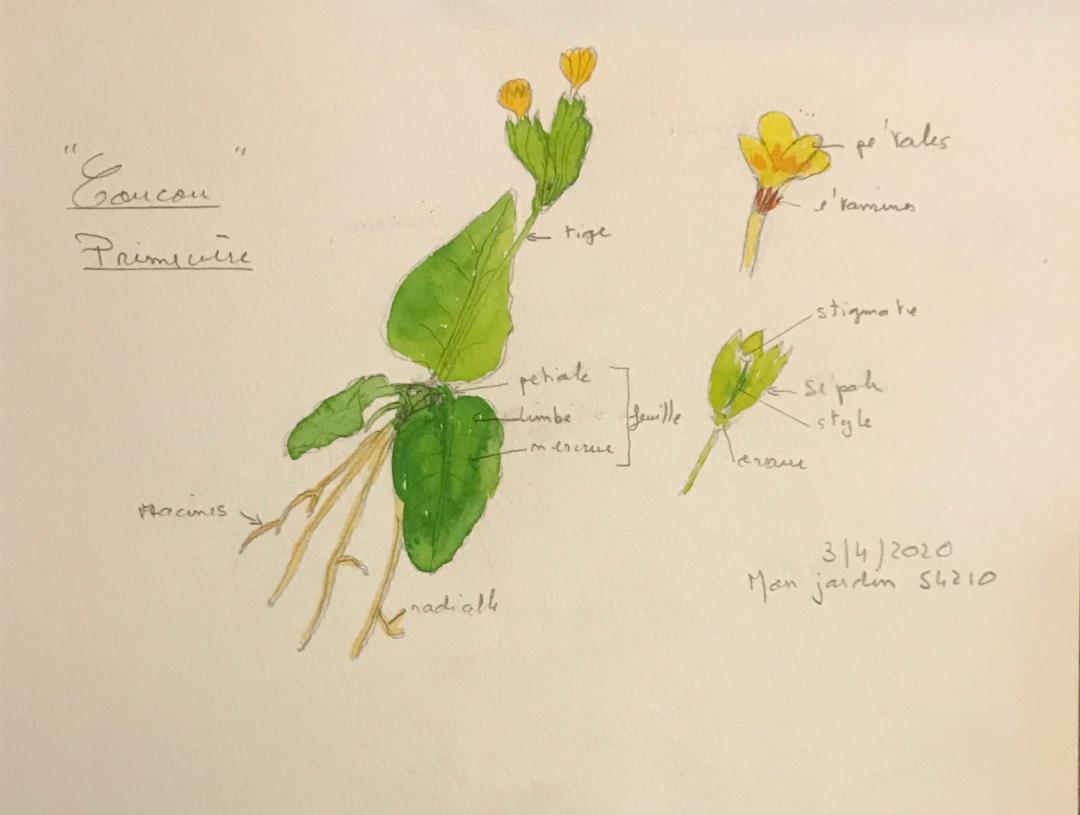 "Coucou"
Primevère
tige
pétiole
limbe
nervure
feuille
racines
radicelle
pétales
étamines
stigmate
Sépale
style
ovaire
3/4/2020
Mon jardin 54210